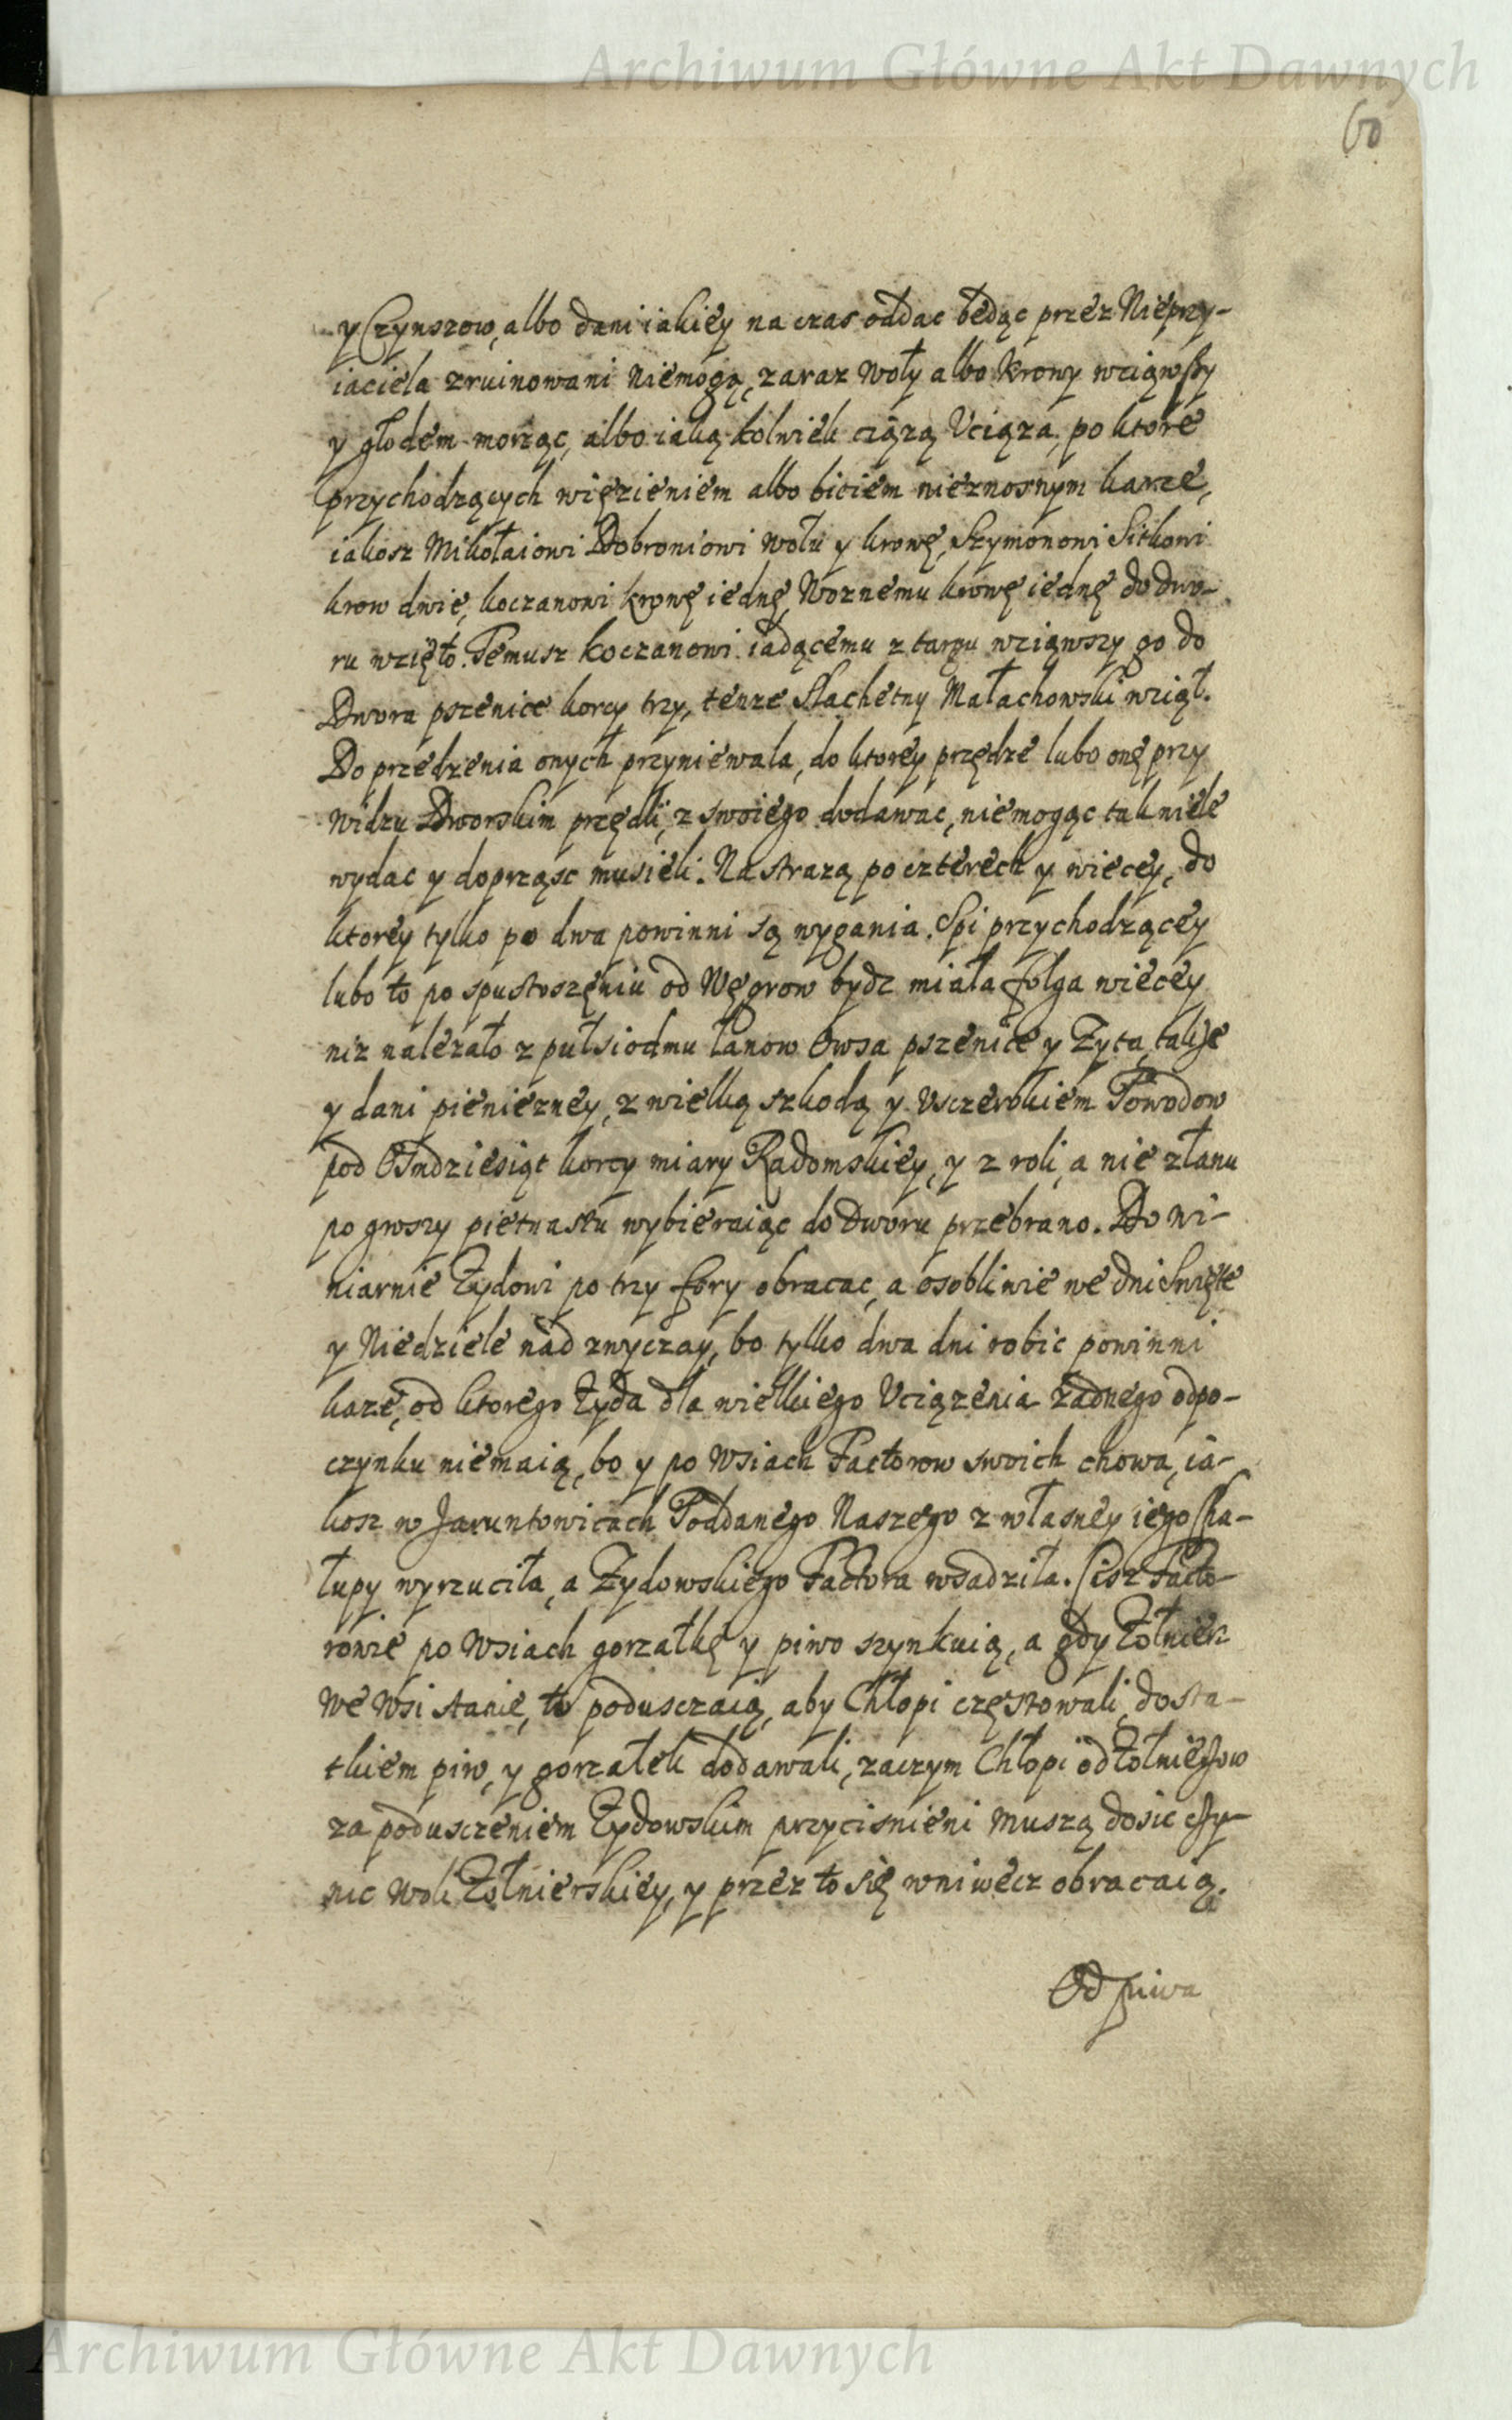 Archiwum Główne Akt Dawnych
60
y Czynszow, albo dani iakiey na czas oddac będąc przez Nieprzy-
iaciela zruinowani niemogą, zaraz woły albo krowy wziąwszy
y głodem morząc, albo iaką kolwiek ciążą Uciąza, po ktore
przychodzących więzieniem albo biciem nieznosnym karze,
iakosz Mikołaiowi Dobroniowi wołu y krowę, Szymonowi Sitkowi
krow dwie, koczanowi krowę iednę, Woznemu krowę iednę do dwo-
ru wzięto. Temusz koczanowi iadącemu z targu wziąwszy go do
Dwora pszenice korcy trzy, tenze Slachetny Małachowski wziął.
Do przedzenia onych przyniewala, do ktorey przędze lubo onę przy
widzu Dworskim przędli, z swoiego dodawac, niemogąc tak wiele
wydac y doprząsc musieli. Na strazą po czterech y wiecey, do
ktorey tylko po dwa powinni są wygania. Spi przychodzącey
lubo to po spustoszęniu od Węgrow bydz miała folga wiecey
niz nalezało z pułsiodmu łanow Owsa pszenice y Zyta, takze
y dani pieniezney, z wielką szkodą y Usczerbkiem Powodow
pod Osmdziesiąt korcy miary Radomskiey, y z roli, a nie złanu
po groszy pietnastu wybieraiąc do Dworu przebrano. Do wi-
niarnie Zydowi po trzy fory obracac, a osobliwie we dni Swięte
y Niedziele nad zwyczay, bo tylko dwa dni robic powinni
kaze, od ktorego Zyda dla wielkiego Uciązenia zadnego odpo-
czynku niemaią, bo y po Wsiach Factorow swoich chowa, ia-
kosz w Jaruntowicach Poddanego Naszego z własney iego Cha-
łupy wyrzuciła, a Zydowskiego Factora wsadziła. Cisz Facto-
rowie po Wsiach gorzałkę y piwo szynkuią, a gdy Zołnierz
we Wsi stanie, to podusczaią, aby Chłopi częstowali, dosta-
tkiem piw, y gorzałek dodawali, zaczym Chłopi od Zołnierzow
za podusczeniem Zydowskim przycisnieni muszą dosic czy-
nic woli Zołnierskiey, y przez to się wniwecz obracaią.
Od piwa
Archiwum Główne Akt Dawnych